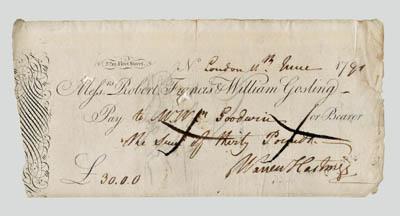 Fleet Street
No London 11th June 1791
Messrs Robert Francis & William Gosling
Pay to Mr Wm Goodwin or Bearer
the Sum of thirty Pounds
£ 30.0.0 Warren Hastings